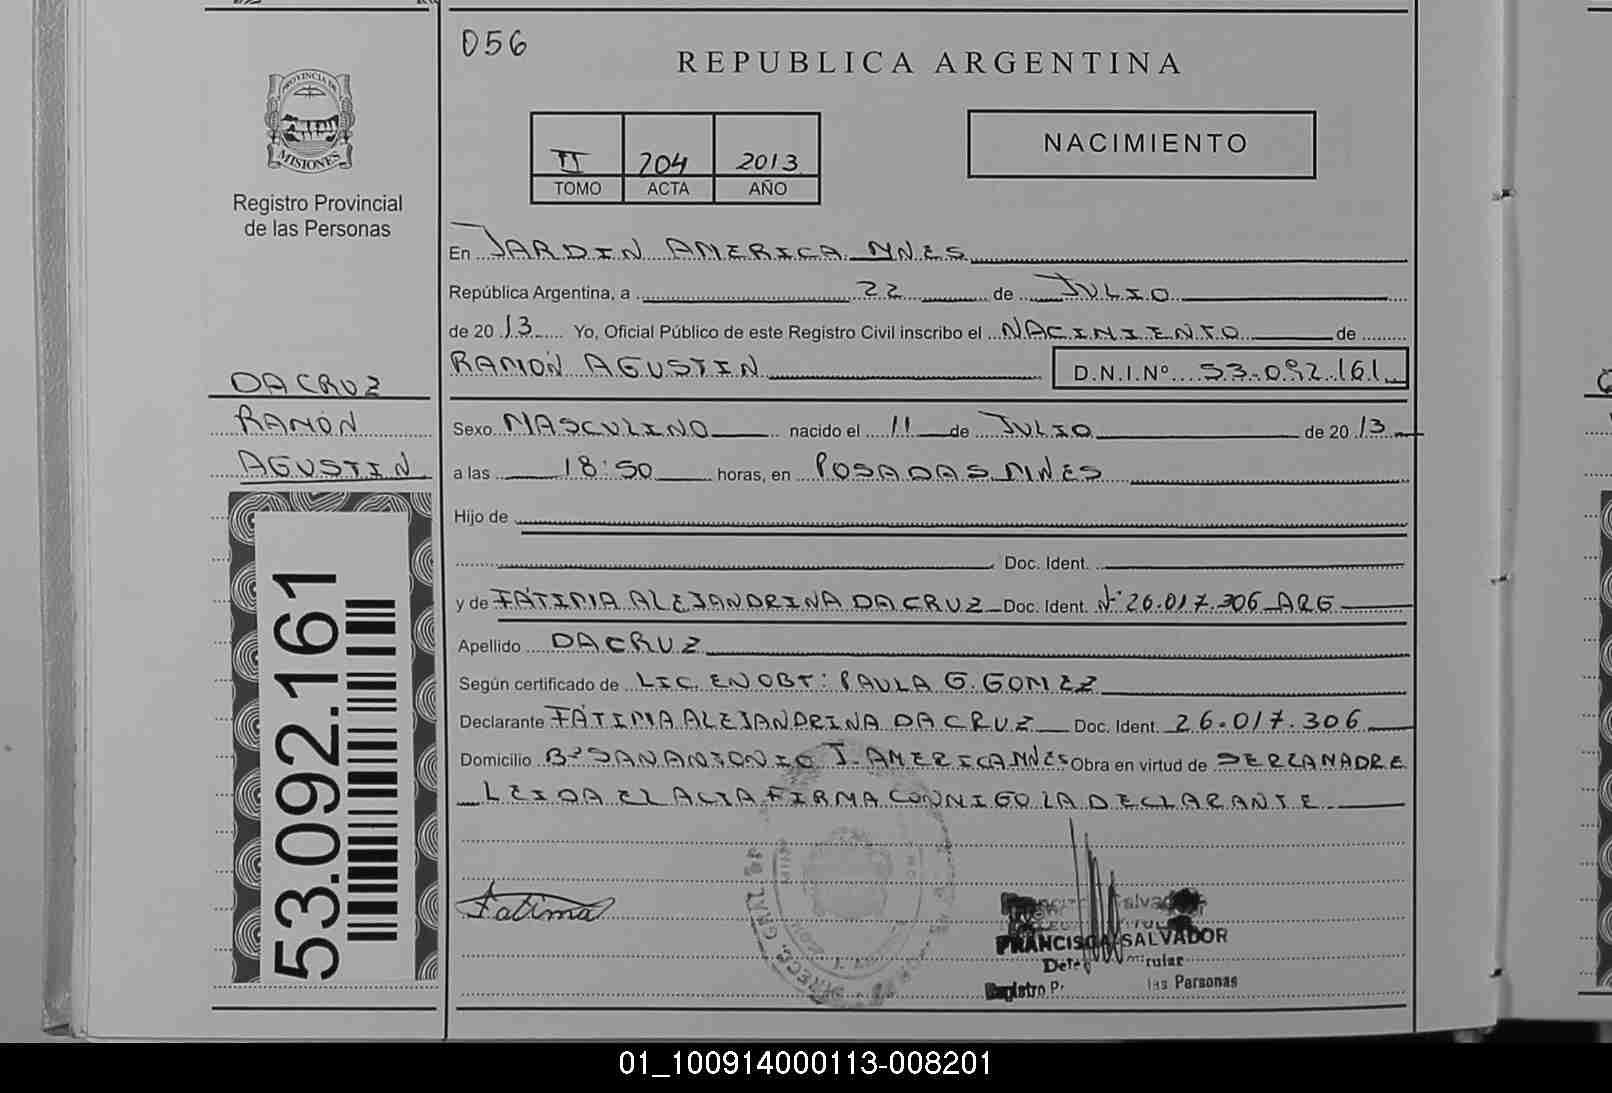 056
REPUBLICA ARGENTINA
PROVINCIA DE
MISIONES
Registro Provincial
de las Personas
II 204 2013
TOMO ACTA AÑO
NACIMIENTO
En JARDIN AMERICA MNES
República Argentina, a 22 de JULIO
de 20 13 Yo, Oficial Público de este Registro Civil inscribo el NACIMIENTO de
RAMÓN AGUSTIN D.N.I.Nº 53.092.161
DA CRUZ
RAMÓN
AGUSTIN
Sexo MASCULINO nacido el 11 de JULIO de 20 13
a las 18:50 horas, en POSADAS MNES
Hijo de
Doc. Ident.
y de FÁTIMA ALEJANDRINA DA CRUZ Doc. Ident. Nº 26.017.306 ARG
Apellido DA CRUZ
Según certificado de LIC. EN OBT: PAULA G. GOMEZ
Declarante FÁTIMA ALEJANDRINA DA CRUZ Doc. Ident. 26.017.306
Domicilio Bº SAN ANTONIO J. AMERICA MNES Obra en virtud de SER LA MADRE
LEIDA EL ACTA FIRMA CONMIGO LA DECLARANTE
53.092.161
Fatima
FRANCISCA SALVADOR
Registro P
las Personas
01_100914000113-008201